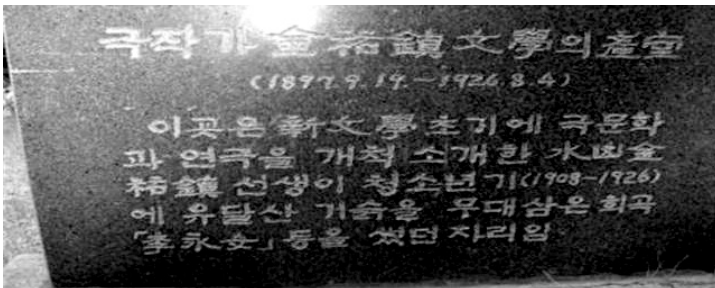 극작가 金祐鎭文學의產室
(1897.9.19.-1926.8.4)
이곳은 新文學초기에 극문학
과 연극을 개척 소개한 水山金
祐鎭 선생이 청소년기(1908-1926)
에 유달산 기슭을 무대삼은 희곡
「李永女」등을 썼던 자리임